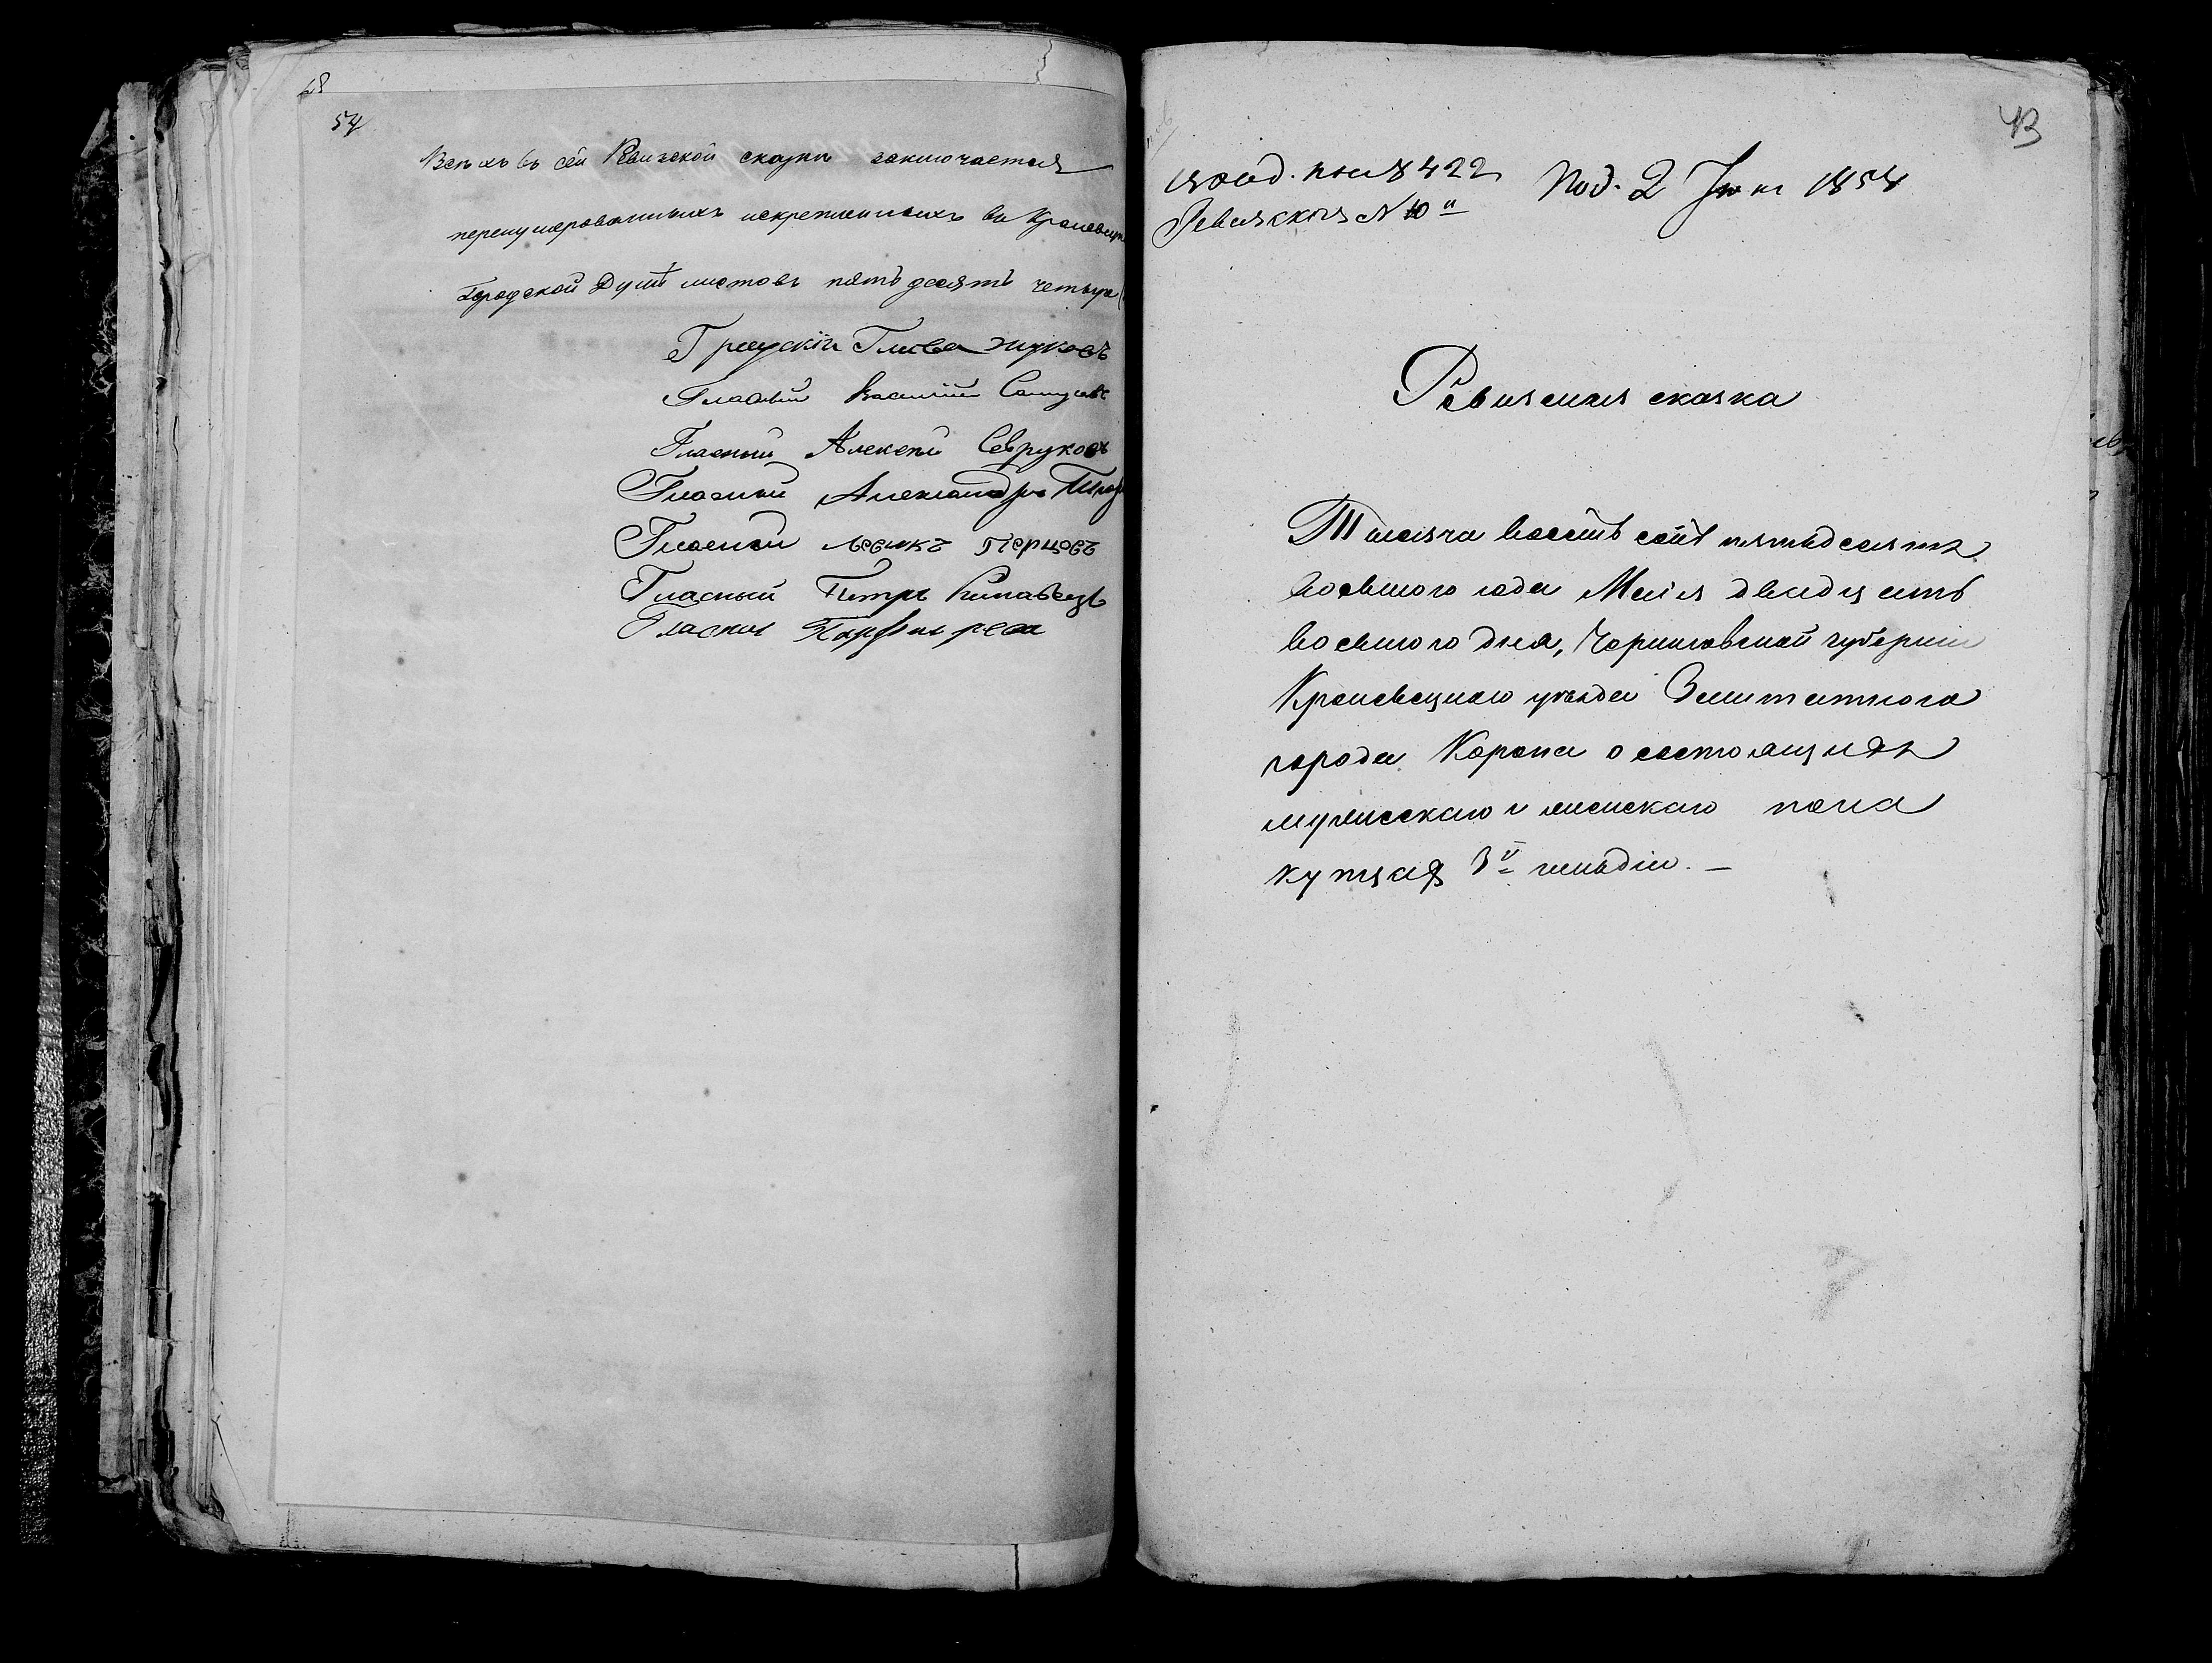 54
Всѣхъ въ сей Ревизской сказки заключается
перенумерованныхъ искрепленныхъ въ Кролевец
Городской Думѣ листовъ пятьдесятъ четыре
Градскій Глава Жуковъ
Гласный Василій
Гласный Алексѣй Севруковъ
Гласный Александръ
Гласный Левикъ Перцовъ
Гласный Петръ
Гласный
43
422 Под. 2 Іюня 1858
Ревизская № 10й
Ревизская сказка
Тысяча восемь сотъ пятьдесятъ
восьмого года Маія двадцать
восьмого дня, Черниговской губерніи
Кролевецкаго уѣзда Заштатного
города Коропа о состоящихъ
мужескаго и женскаго пола
купцах 3й гильдіи. —